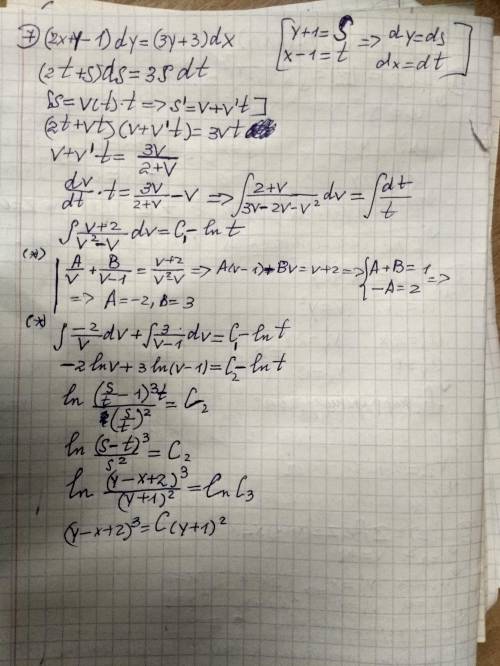 7 (2x+y-1)dy=(3y+3)dx [y+1=S => dy=ds
x-1=t dx=dt]
(2t+s)ds=3s dt
[s=v(t)·t => s'=v+v't]
(2t+vt)(v+v't)=3vt
v+v'·t=3v/(2+v)
dv/dt·t=3v/(2+v)-v => ∫(2+v)/(3v-2v-v²)dv=∫dt/t
∫(v+2)/(v²-v)dv=C₁-ln t
(*) A/v+B/(v-1)=(v+2)/(v²-v) => A(v-1)+Bv=v+2=>{A+B=1
-A=2 =>
=> A=-2, B=3
(*) ∫-2/v dv+∫3/(v-1)dv=C₁-ln t
-2lnv+3ln(v-1)=C₂-ln t
ln (s/t-1)³t/(s/t)²=C₂
ln (s-t)³/s²=C₂
ln (y-x+2)³/(y+1)²=ln C₃
(y-x+2)³=C(y+1)²